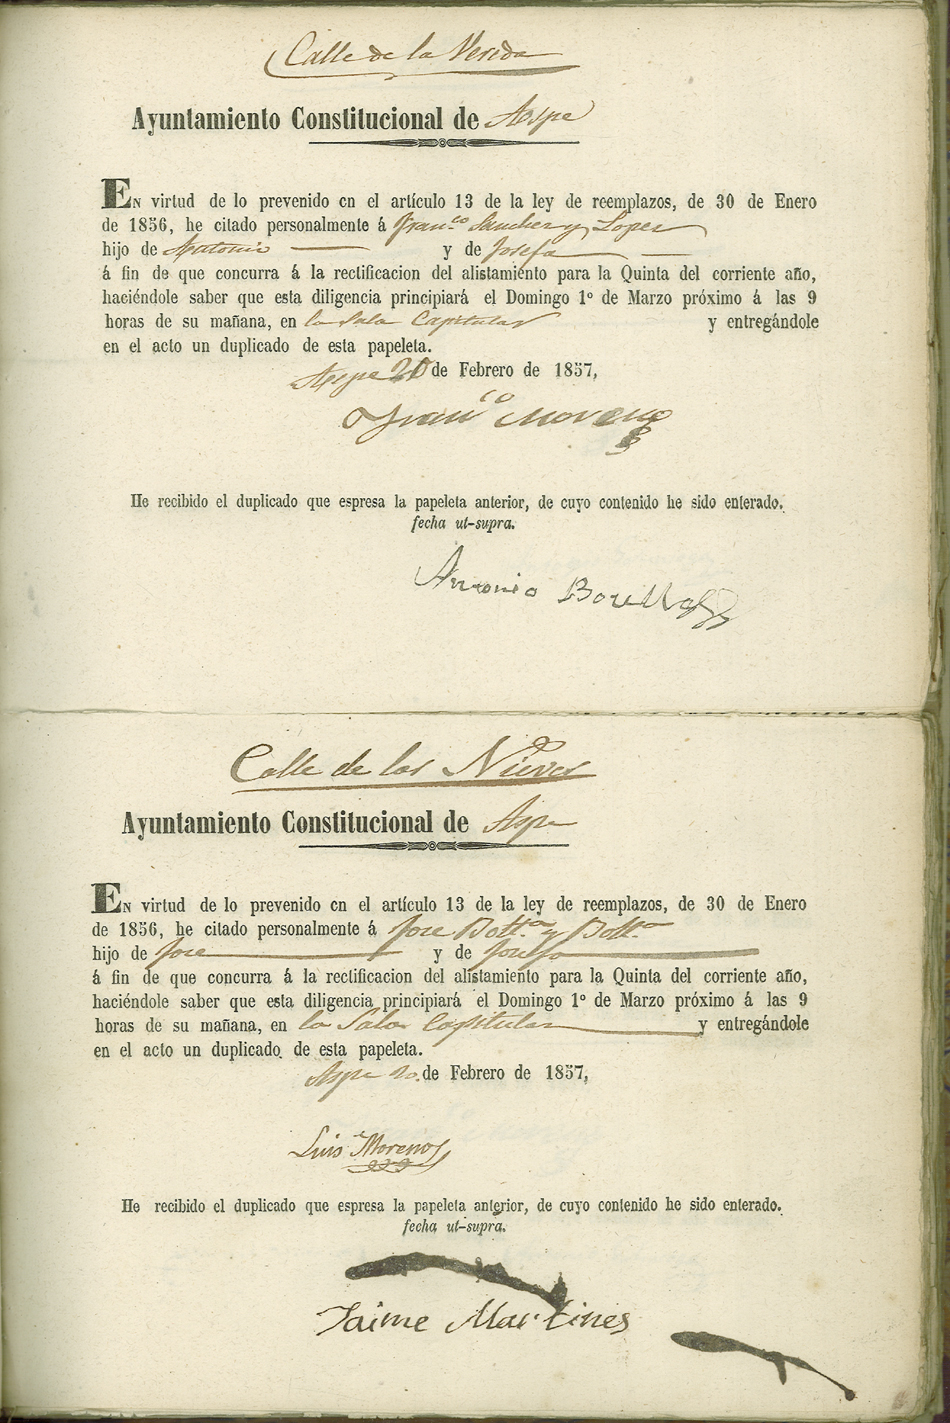 Calle de la Vereda
Ayuntamiento Constitucional de Aspe
EN virtud de lo prevenido en el artículo 13 de la ley de reemplazos, de 30 de Enero
de 1856, he citado personalmente á Fran.co Sanchez y Lopez
hijo de Antonio y de Josefa
á fin de que concurra á la rectificacion del alistamiento para la Quinta del corriente año,
haciéndole saber que esta diligencia principiará el Domingo 1º de Marzo próximo á las 9
horas de su mañana, en la Sala Capitular y entregándole
en el acto un duplicado de esta papeleta.
Aspe 20 de Febrero de 1857,
Fran.co Moreno
He recibido el duplicado que espresa la papeleta anterior, de cuyo contenido he sido enterado.
fecha ut-supra.
Antonio
Calle de las Nieves
Ayuntamiento Constitucional de Aspe
EN virtud de lo prevenido en el artículo 13 de la ley de reemplazos, de 30 de Enero
de 1856, he citado personalmente á Jose Bott.a y Bott.a
hijo de Jose y de Josefa
á fin de que concurra á la rectificacion del alistamiento para la Quinta del corriente año,
haciéndole saber que esta diligencia principiará el Domingo 1º de Marzo próximo á las 9
horas de su mañana, en la Sala Capitular y entregándole
en el acto un duplicado de esta papeleta.
Aspe 20 de Febrero de 1857,
Luis Moreno
He recibido el duplicado que espresa la papeleta anterior, de cuyo contenido he sido enterado.
fecha ut-supra.
Jaime Martines